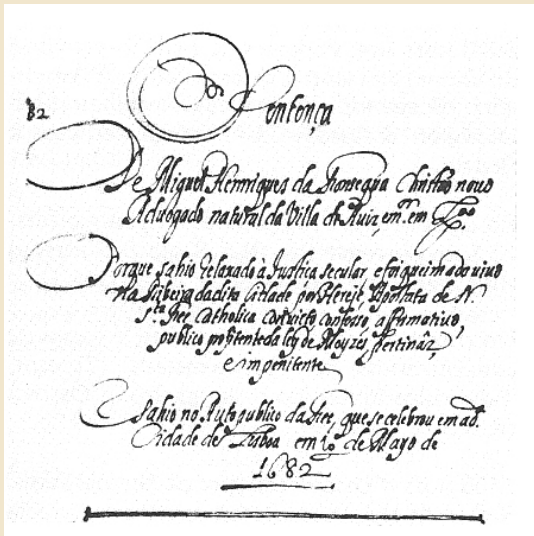 82
Sentença
De Miguel Henriques da Fonsequa Christão novo
Advogado natural da Villa de Aviz, em
Porque sahio relaxado à Justiça secular, e foi queimado vivo
Na Ribeira da dita Cidade por Hereje, Apostata de N.
Sta Fee Catholica convicto confesso, affirmativo,
publico profitente da ley de Moyzes, pertinàz,
e impenitente
Sahio no Auto publico da Fee, que se celebrou em a dª
Cidade de Lisboa em 10 de Mayo de
1682